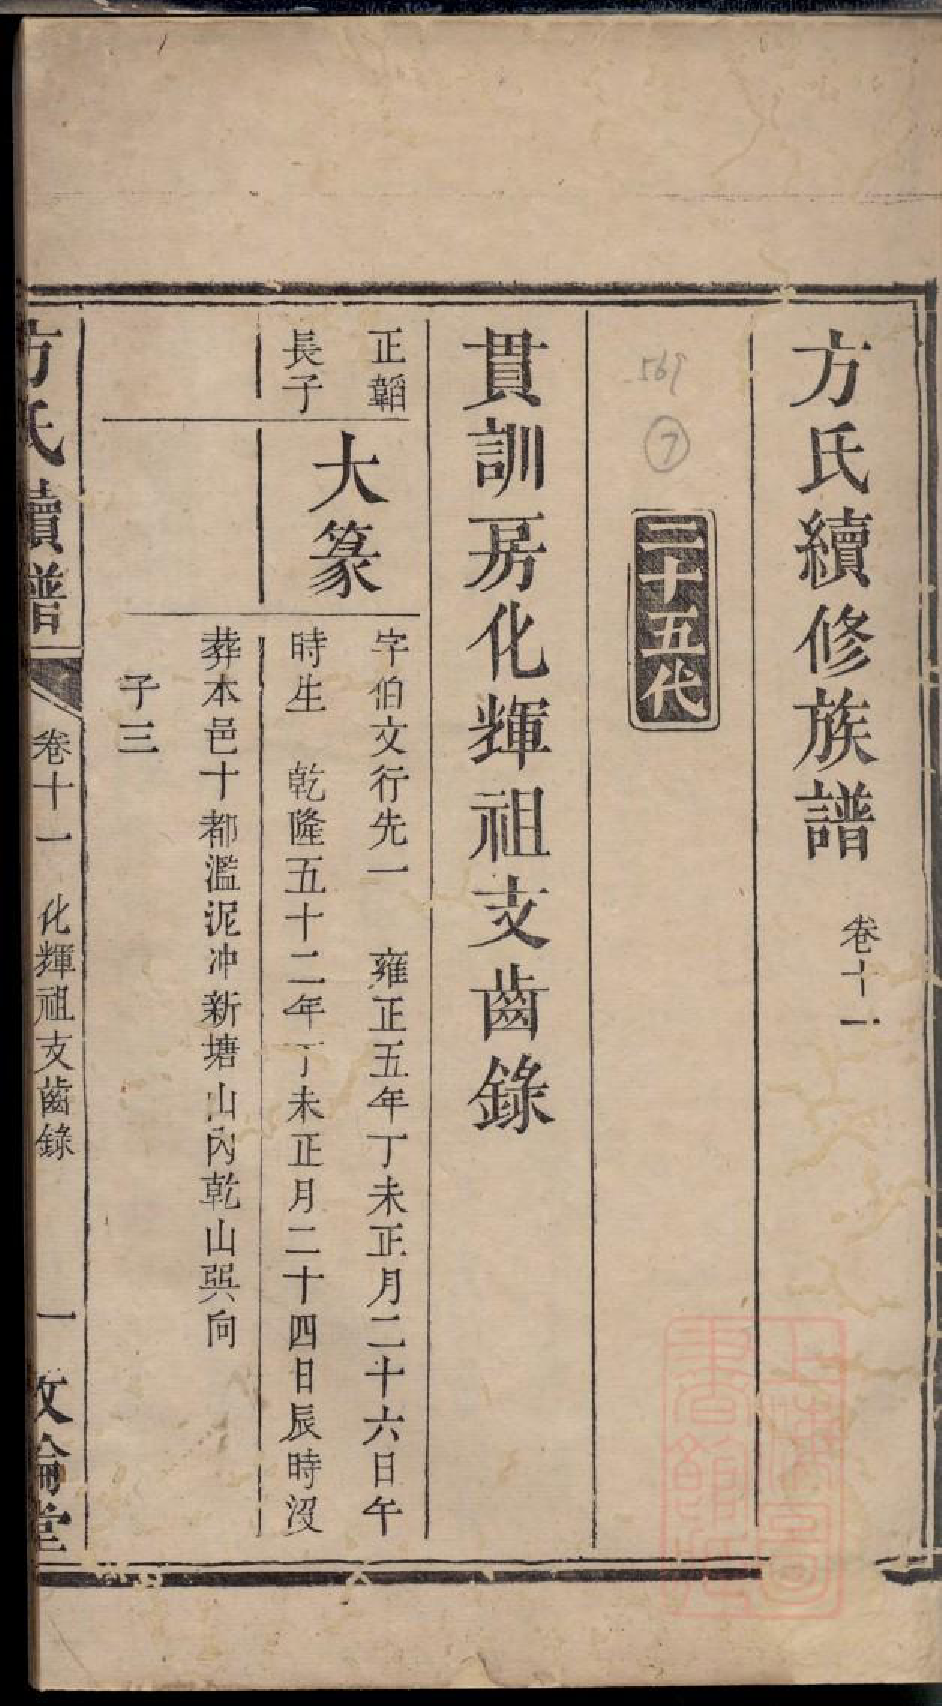 方氏續修族譜 卷十一
二十五代
569
7
貫訓房化輝祖支齒錄
正韜
長子
大篆
字伯文行先一 雍正五年丁未正月二十六日午
時生 乾隆五十二年丁未正月二十四日辰時沒
葬本邑十都濫泥冲新塘山內乾山巽向
子三
方氏續譜 卷十一 化輝祖支齒錄 一 敦倫堂